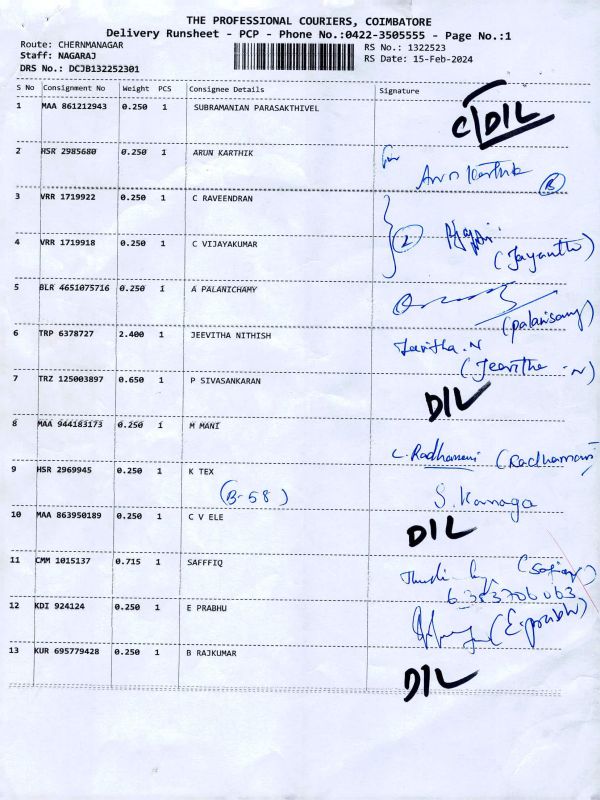 THE PROFESSIONAL COURIERS, COIMBATORE
Delivery Runsheet - PCP - Phone No.:0422-3505555 - Page No.:1
Route: CHERNMANAGAR
Staff: NAGARAJ
DRS No.: DCJB132252301
RS No.: 1322523
RS Date: 15-Feb-2024
S No Consignment No Weight PCS Consignee Details Signature
1 MAA 861212943 0.250 1 SUBRAMANIAN PARASAKTHIVEL C/D/L
2 HSR 2985680 0.250 1 ARUN KARTHIK for Arun Karthik B
3 VRR 1719922 0.250 1 C RAVEENDRAN 2
4 VRR 1719918 0.250 1 C VIJAYAKUMAR (Jayanthi)
5 BLR 4651075716 0.250 1 A PALANICHAMY (palanisamy)
6 TRP 6378727 2.400 1 JEEVITHA NITHISH Jeevitha.N
(Jeevitha .N)
7 TRZ 125003897 0.650 1 P SIVASANKARAN D/L
8 MAA 944183173 0.250 1 M MANI C. Radhamani (Radhamani)
9 HSR 2969945 0.250 1 K TEX
(B-58) S. Kanaga
10 MAA 863950189 0.250 1 C V ELE D/L
11 CMM 1015137 0.715 1 SAFFFIQ
6353706063
12 KDI 924124 0.250 1 E PRABHU (E.prabhu)
13 KUR 695779428 0.250 1 B RAJKUMAR D/L